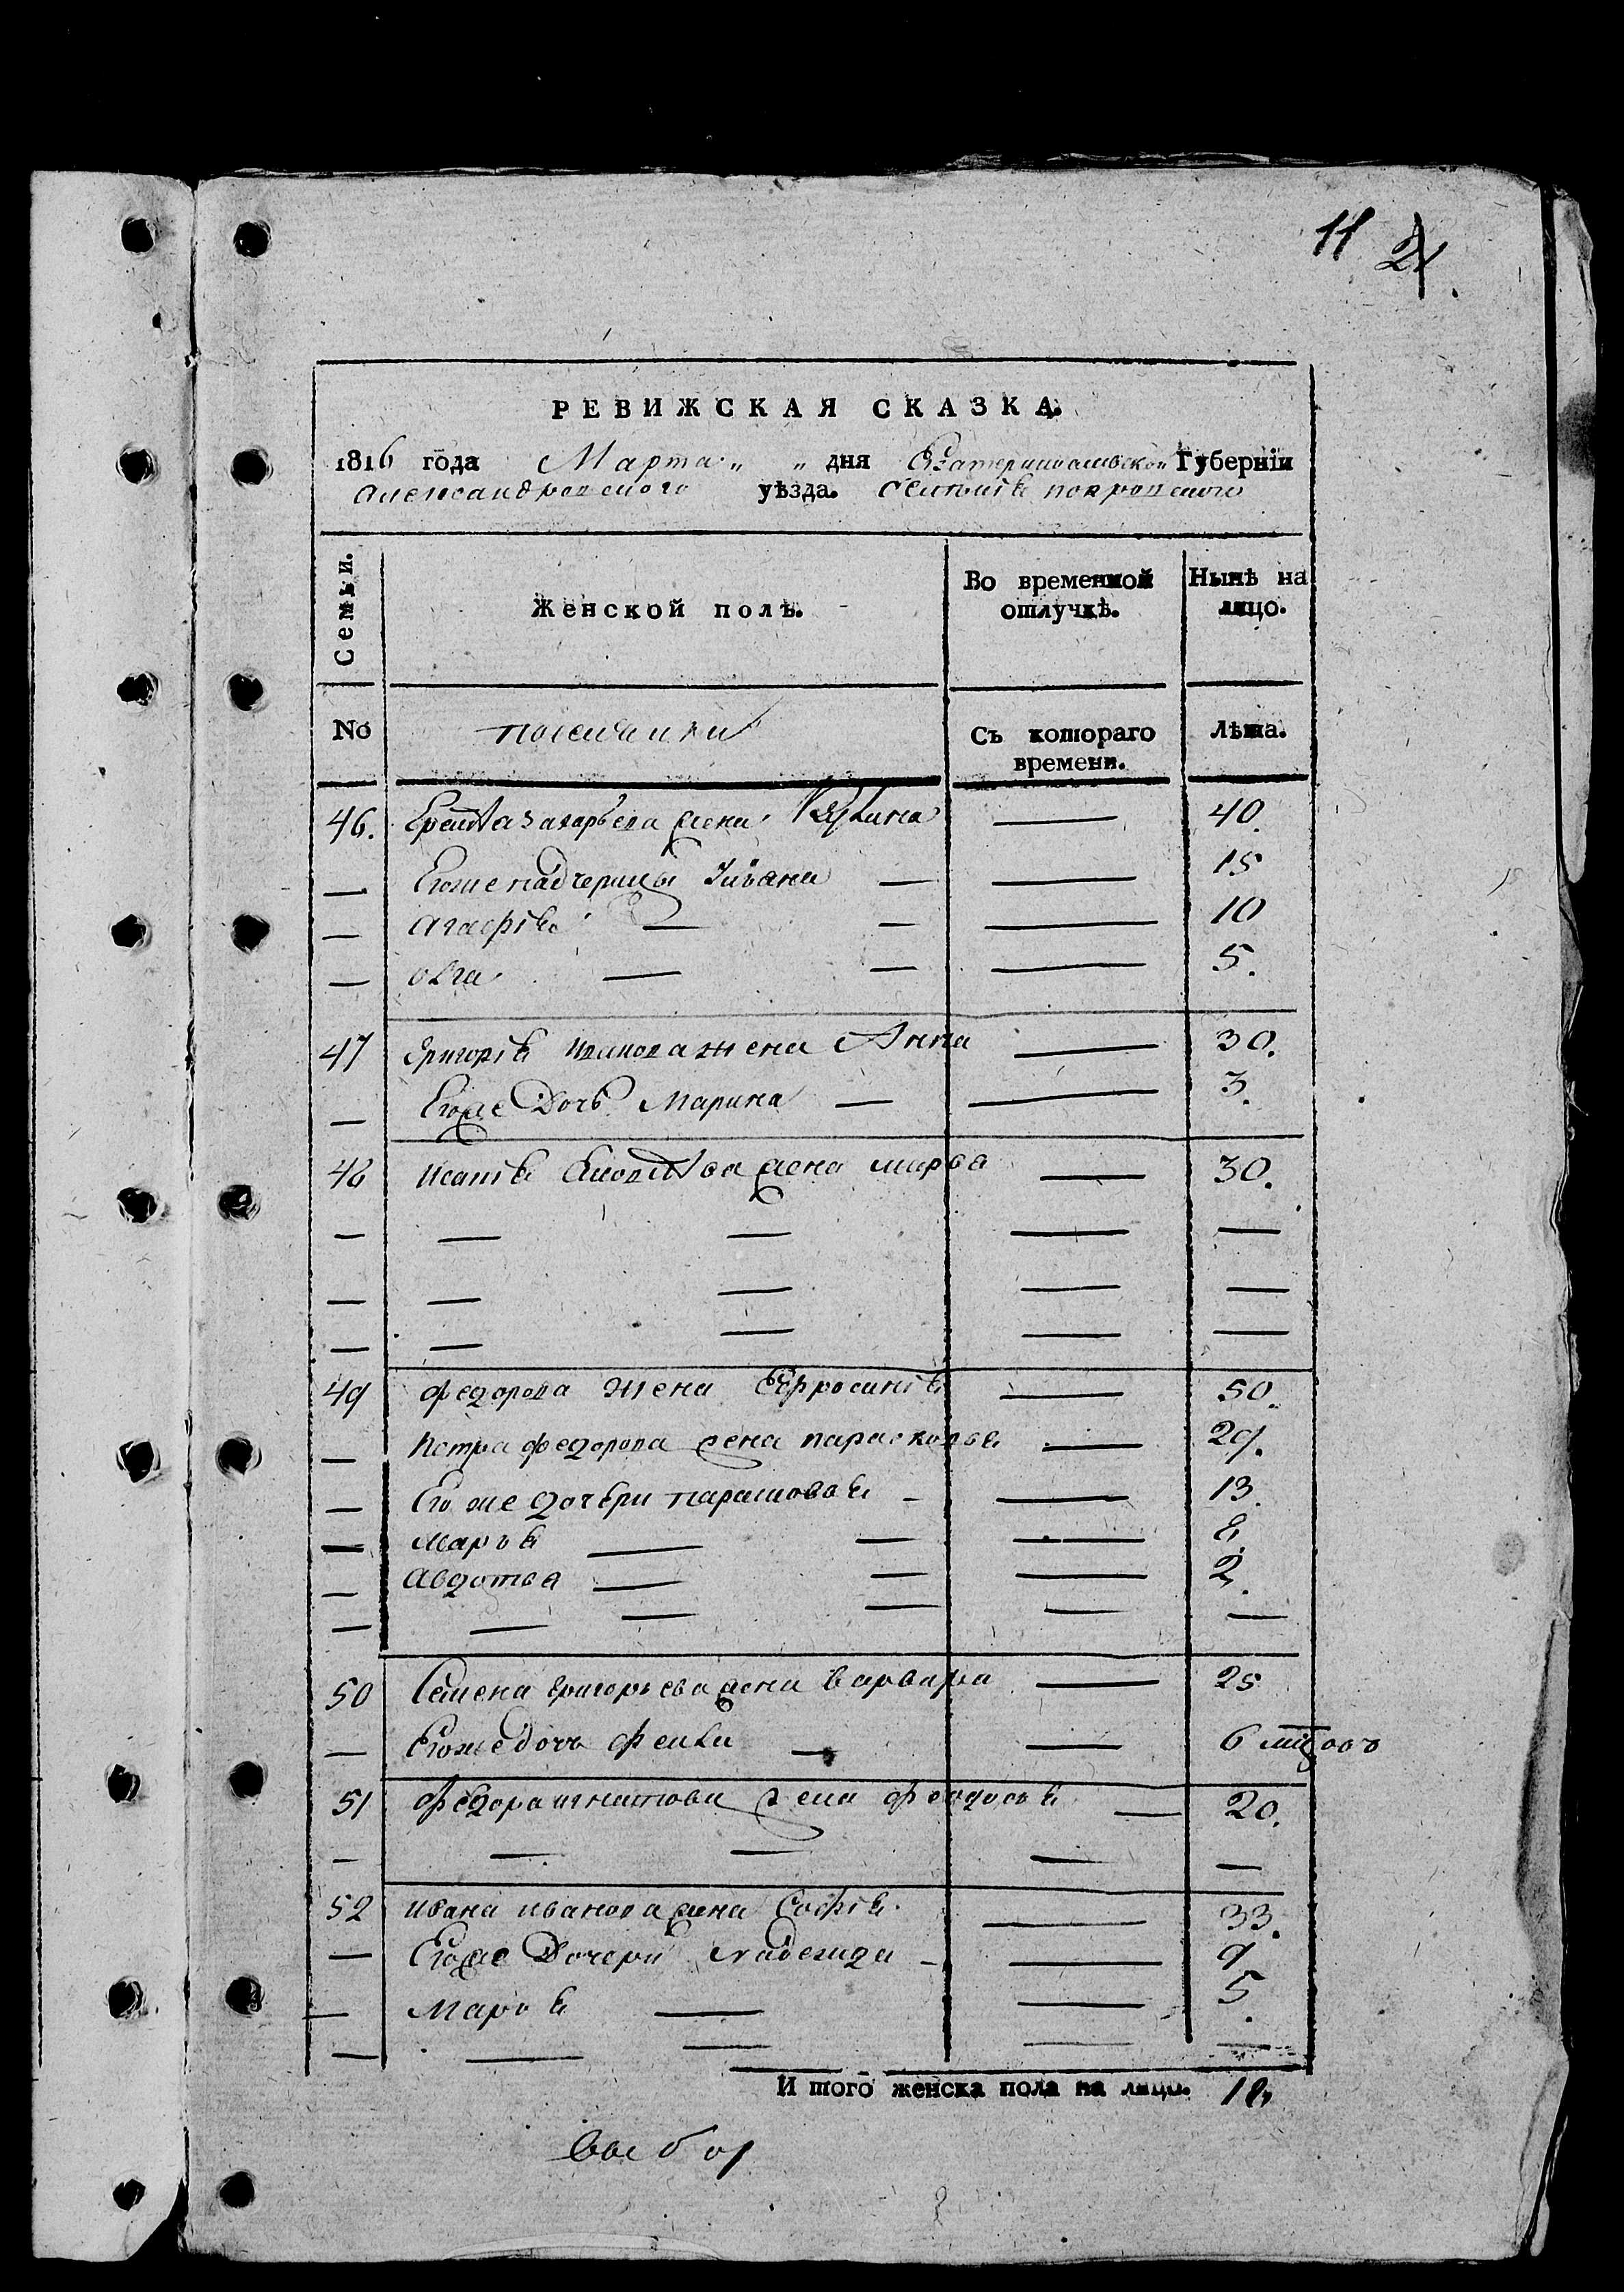 11 21
РЕВИЖСКАЯ СКАЗКА.
1816 года Марта „ „ дня Екатеринославской Губерніи
Александровского уѣзда. Селенія покровского
Семьи.
Женской полъ.
Во временной отлучкѣ.
Нынѣ на лицо.
№
Съ котораго времени.
Лѣта.
46. захарьева жена 40.
— Егоже падчерицы Ульяна — — 15
— Агафія — — — 10
— олга — — — 5.
47 Григорія иванова жена Анна — 30.
— Егоже Дочь Марина — — 3.
48 жена марья — 30.
— — — — —
— — — — —
— — — — —
49 федорова жена Ефросинія — 50.
— Петра федорова жена парасковья — 29.
— Его же дочери — — 13.
— Марья — — — 8.
— Авдотья — — — 2.
— — — — — —
50 Семена Григорьева жена варвара — 25
— Егоже дочь фекла — — 6 мцовъ
51 федора игнатова жена феодосія — 20.
— — — — —
52 ивана иванова жена Софія — 33.
— Егоже Дочери Надежда — — 9
— Марья — — 5.
— — — — —
И того женска пола на лицо. 18.